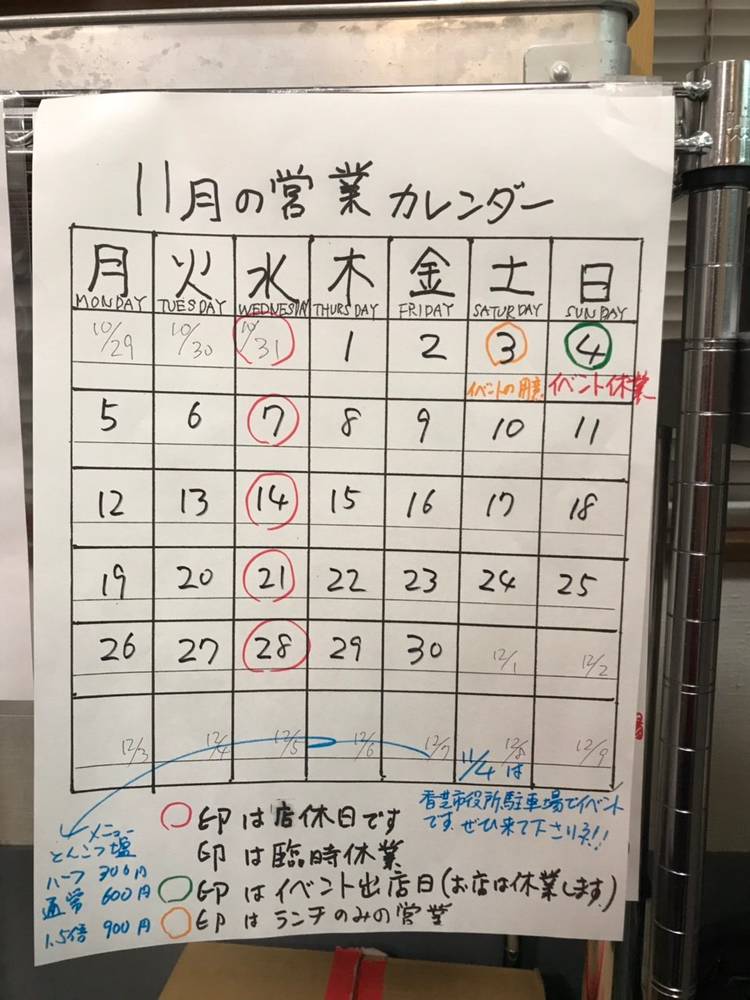 11月の営業カレンダー
月 火 水 木 金 土 日
MONDAY TUESDAY WEDNESDAY THURSDAY FRIDAY SATURDAY SUNDAY
10/29 10/30 10/31 1 2 3 4
イベントの用意 イベント休業
5 6 7 8 9 10 11
12 13 14 15 16 17 18
19 20 21 22 23 24 25
26 27 28 29 30 12/1 12/2
12/3 12/4 12/5 12/6 12/7 12/8 12/9
11/4は
香芝市役所駐車場でイベント
です。ぜひ来て下さいネ!!
○印は店休日です
印は臨時休業
○印はイベント出店日(お店は休業します)
○印はランチのみの営業
メニュー
とんこつ塩
ハーフ 300円
通常 600円
1.5倍 900円